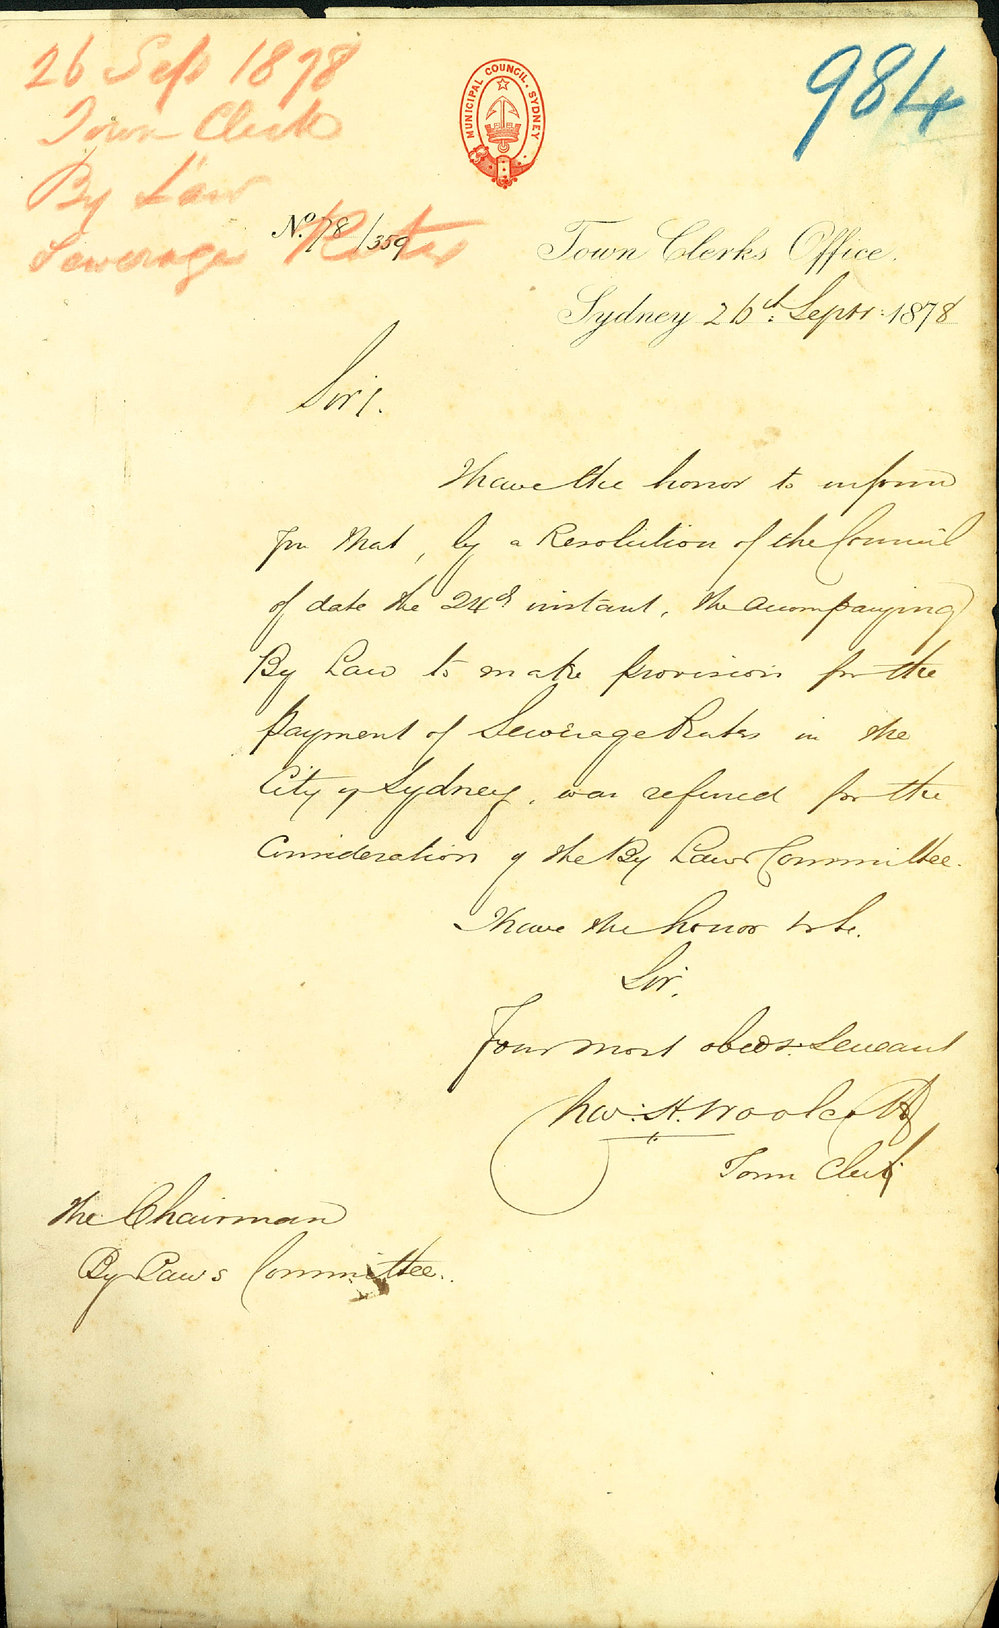 26 Sep 1878
Town Clerk
By Law
Sewerage Rates
MUNICIPAL COUNCIL, SYDNEY
984
No. 78/359
Town Clerks Office.
Sydney 26th. Septr: 1878
Sir,
I have the honor to inform
you that, by a Resolution of the Council
of date the 24th instant, the accompanying
By Law to make provision for the
payment of Sewerage Rates in the
City of Sydney, was referred for the
Consideration of the By Laws Committee.
I have the honor to be.
Sir,
Your most obedt. Servant
Chas. H. Woolcott
Town Clerk
The Chairman
By Laws Committee.